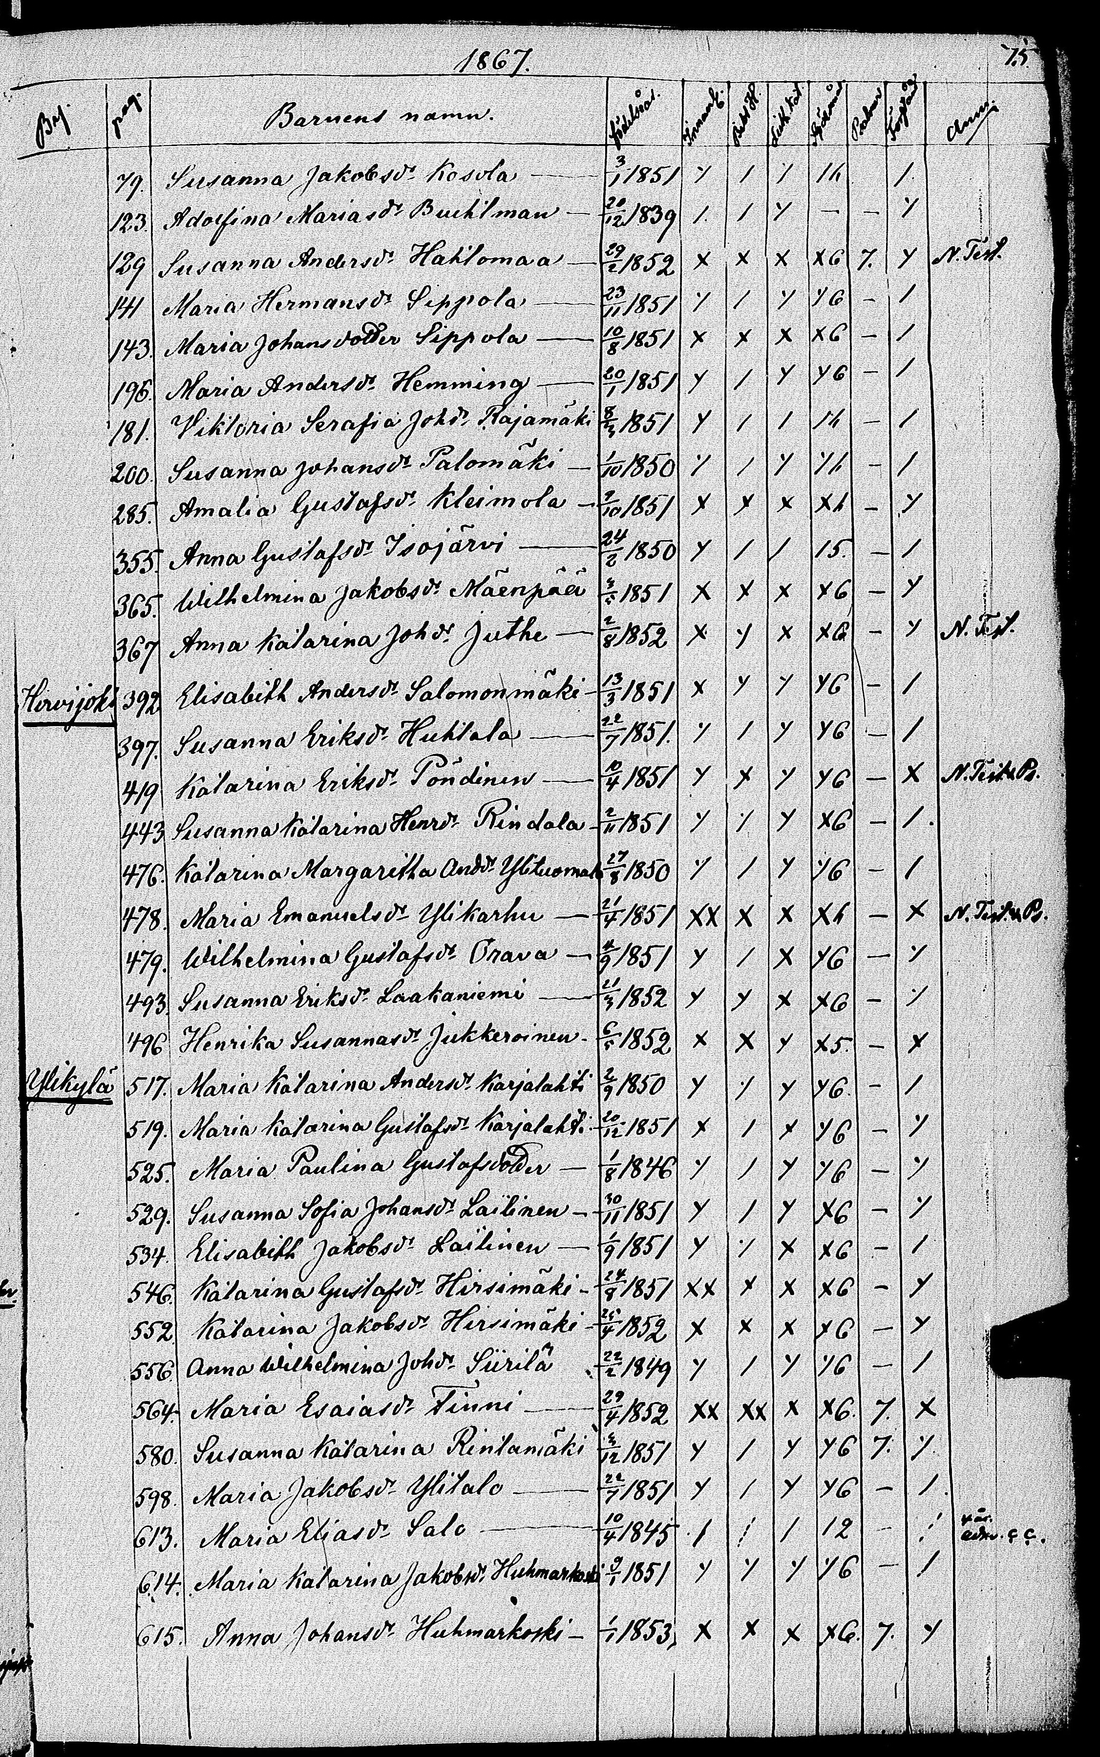 1867. 75
Byj. pag. Barnens namn. Födelseår. Innanl. Luth. Kat. Psalmer Anm.
79. Susanna Jakobsdr Kosola — 3/1 1851 y / y 1h /
123. Adolfina Mariasdr Buchtman — 20/12 1839 / / y — — y
129 Susanna Andersdr Hahtomaa — 29/2 1852 x x x x6 7. y N. Test.
141 Maria Hermansdr Sippola — 23/11 1851 y / y y6 — /
143. Maria Johansdotter Sippola — 10/8 1851 x x x x6 — /
196. Maria Andersdr Hemming — 20/1 1851 y / y y6 — /
181. Viktoria Serafia Johdr Rajamäki 8/3 1851 y / / 1h — /
200. Susanna Johansdr Palomäki — 1/10 1850 y / y yh — /
285. Amalia Gustafsdr Kleimola — 9/10 1851 x x x xh — y
355. Anna Gustafsdr Isojärvi — 24/2 1850 y / / 15. — /
365. Wilhelmina Jakobsdr Mäenpää 3/5 1851 x x x x6 — y
367 Anna Katarina Johdr Juthe — 2/8 1852 x y x x6 — y N. Test.
Hirvijoki 392 Elisabeth Andersdr Salomonmäki — 13/3 1851 x y y y6 — /
397. Susanna Eriksdr Huhtala — 22/7 1851. y / y y6 — /
419 Katarina Eriksdr Pöndinen — 10/4 1851 y x y y6 — x N. Test. & Ps.
443 Susanna Katarina Henrdr Rindala — 2/11 1851 y y y x6 — /.
476. Katarina Margaretha Anddr Ylituomala 27/8 1850 y / y y6 — /
478. Maria Emanuelsdr Ylikarhu — 21/4 1851 xx x x xh — x N. Test. & Ps.
479. Wilhelmina Gustafsdr Orava — 4/9 1851 y / x y6 — y
493. Susanna Eriksdr Laakaniemi — 21/3 1852 y y x x6 — y
496 Henrika Susannasdr Jukkeroinen — 6/5 1852 x x y x5. — x
Ylikylä 517. Maria Katarina Andersdr Karjalahti 2/9 1850 y y y y6. — /
519. Maria Katarina Gustafsdr Karjalahti 20/12 1851 x / x y6 — y
525. Maria Paulina Gustafsdotter — 1/8 1846 y / y y6 — y
529. Susanna Sofia Johansdr Lailinen — 30/11 1851 y / y x6 — y
534. Elisabeth Jakobsdr Lailinen — 1/9 1851 y y x x6 — /
546. Katarina Gustafsdr Hirsimäki — 24/8 1851 xx x x x6 — y
552 Katarina Jakobsdr Hirsimäki — 25/4 1852 x x x x6 — y
556 Anna Wilhelmina Johdr Siirilä 22/2 1849 y / y y6 — /
564 Maria Esaiasdr Finni — 29/4 1852 xx xx x x6. 7. x
580. Susanna Katarina Rintamäki 3/12 1851 y / y y6 7. y
598. Maria Jakobsdr Ylitalo — 22/7 1851 y / y y6 — /
613. Maria Eliasdr Salo — 10/4 1845 / / / 12 — /
614. Maria Katarina Jakobsdr Huhmarkoski 9/1 1851 y y y y6 — /
615. Anna Johansdr Huhmarkoski — 1/1 1853, x x x x6. 7. y